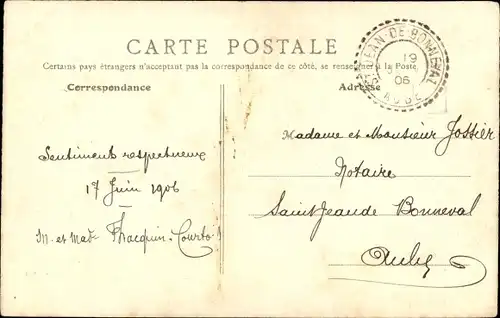 CARTE POSTALE
Certains pays étrangers n'acceptant pas la correspondance de ce côté, se renseigner à la Poste
Correspondance
Adresse
JEAN-DE-BONNEVAL
19
06
AUBE
Sentiments respectueux
17 Juin 1906
M. et Made Thacquin-Courtois
Madame et Monsieur Jossier
Notaire
Saint Jean de Bonneval
Aube